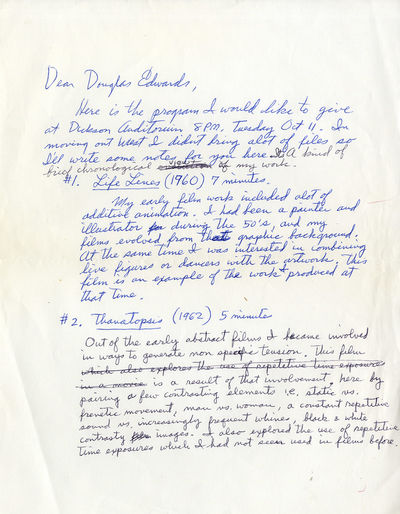 Dear Douglas Edwards,
Here is the program I would like to give
at Dickson Auditorium 8 P.M. Tuesday Oct 11. In
moving out West I didn't bring alot of files so
I'll write some notes for you here. A kind of
brief chronological view of my work.
#1. Life Lines (1960) 7 minutes.
My early film work included alot of
additive animation. I had been a painter and
illustrator during the 50's, and my
films evolved from that graphic background.
At the same time I was interested in combining
live figures or dancers with the artwork. This
film is an example of the work I produced at
that time.
#2. Thanatopsis (1962) 5 minutes
Out of the early abstract films I became involved
in ways to generate non specific tension. This film
which also explores the use of repetetive time exposures
in a movie is a result of that involvement, here by
pairing a few contrasting elements i.e. static vs.
frenetic movement, man vs. woman, a constant repetitive
sound vs. increasingly frequent whines, black & white
contrasty images. I also explored the use of repetitive
time exposures which I had not seen used in films before.